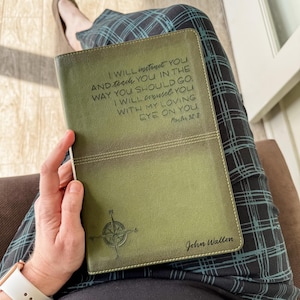 I WILL instruct YOU
AND teach YOU IN THE
WAY YOU SHOULD GO;
I WILL counsel YOU
WITH MY LOVING
EYE ON YOU.
Psalm 32:8
John Wallen